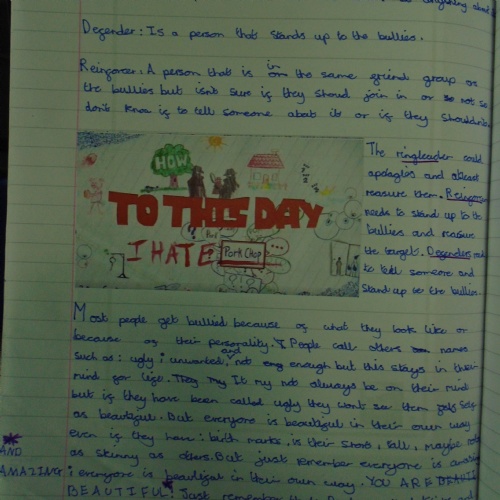 Defender: Is a person that stands up to the bullies.
Reinforcer: A person that is in the same friend group as
the bullies but isn't sure if they shoud join in or not so
don't know if to tell someone abat it or if they shouldn't
HOW
TO THIS DAY
I HATE Pork Chop
The ringleader could
apologies and
reasure them.
needs to stand up to the
bullies and reasure
the target. Defender
to tell someone and
stand up to the bullies
Most people get bullied because of what they look like or
because of their personality. People call others names
such as: ugly, unwanted, and not enough but this stays in their
mind for life. It my not always be on their mind
but if they have been called ugly they wont see them self
as beautiful. But everyone is beautiful in their own way
even if they have: birth marks, is their short, tall, maybe not
as skinny as others. But just remember everyone is
AND
AMAZING
everyone is beautiful in their own way. YOU ARE
BEAUTIFUL! Just remember